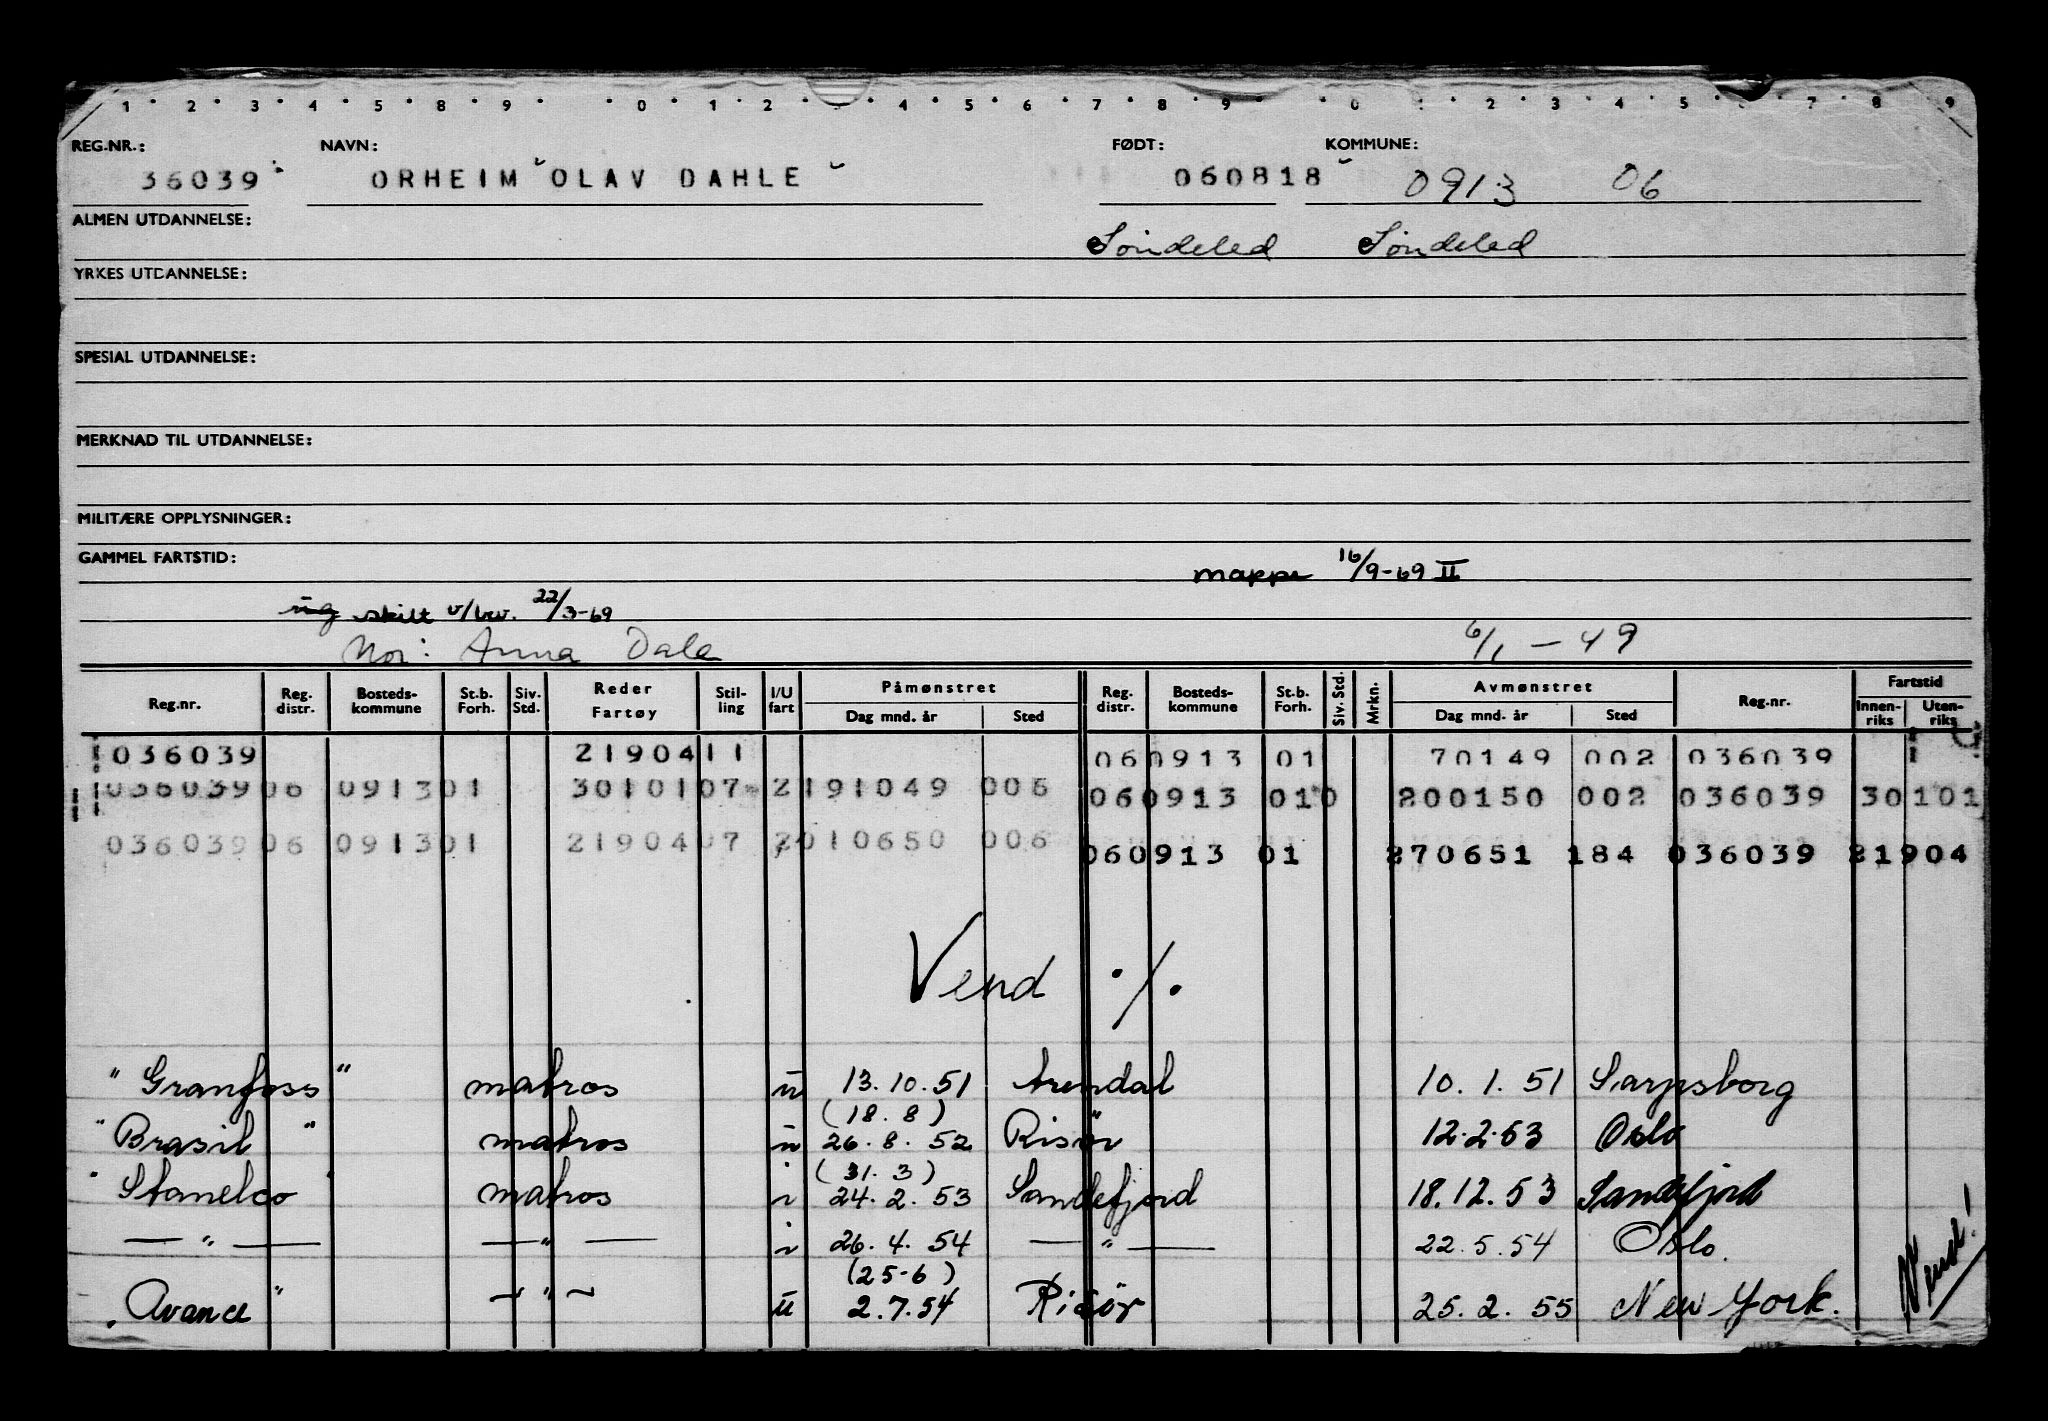 1 · 2 · 3 · 4 · 5 · 8 · 9 · · 0 · 1 · 2 · · 4 · 5 · 6 · 7 · 8 · 9 · · 0 · · 2 · 3 · 4 · 5 · · 8 · 9
REG.NR.: NAVN: FØDT: KOMMUNE:
36039 ORHEIM OLAV DAHLE 060818 0913 06
ALMEN UTDANNELSE: Søndeled Søndeled
YRKES UTDANNELSE:
SPESIAL UTDANNELSE:
MERKNAD TIL UTDANNELSE:
MILITÆRE OPPLYSNINGER:
GAMMEL FARTSTID: mappe 16/9-69 II
skilt v/bev. 22/3-69
Mor: Anna Dale 6/1 - 49
Reg.nr. Reg. distr. Bosteds-kommune St.b. Forh. Siv. Std. Reder Fartøy Stil-ling I/U fart Påmønstret Dag mnd. år Sted Reg. distr. Bosteds-kommune St.b. Forh. Siv. Std. Mrkn. Avmønstret Dag mnd. år Sted Reg.nr. Fartstid Innen-riks Uten-riks
036039 2190411 060913 01 70149 002 036039
036039 06 0913 01 3010107 2 191049 006 060913 010 200150 002 036039 30101
036039 06 0913 01 2190407 2 010650 006 060913 01 270651 184 036039 21904
Vend ·/.
"Granfoss" matros u 13.10.51 Arendal 10.1.51 Sarpsborg
(18.8)
"Brasil" matros u 26.8.52 Risør 12.2.53 Oslo
(31.3)
"Stanelco" matros i 24.2.53 Sandefjord 18.12.53 Sandefjord
— " — — " — i 26.4.54 — " — 22.5.54 Oslo.
(25-6)
"Avance" — " — u 2.7.54 Risør 25.2.55 New York.
Vend!